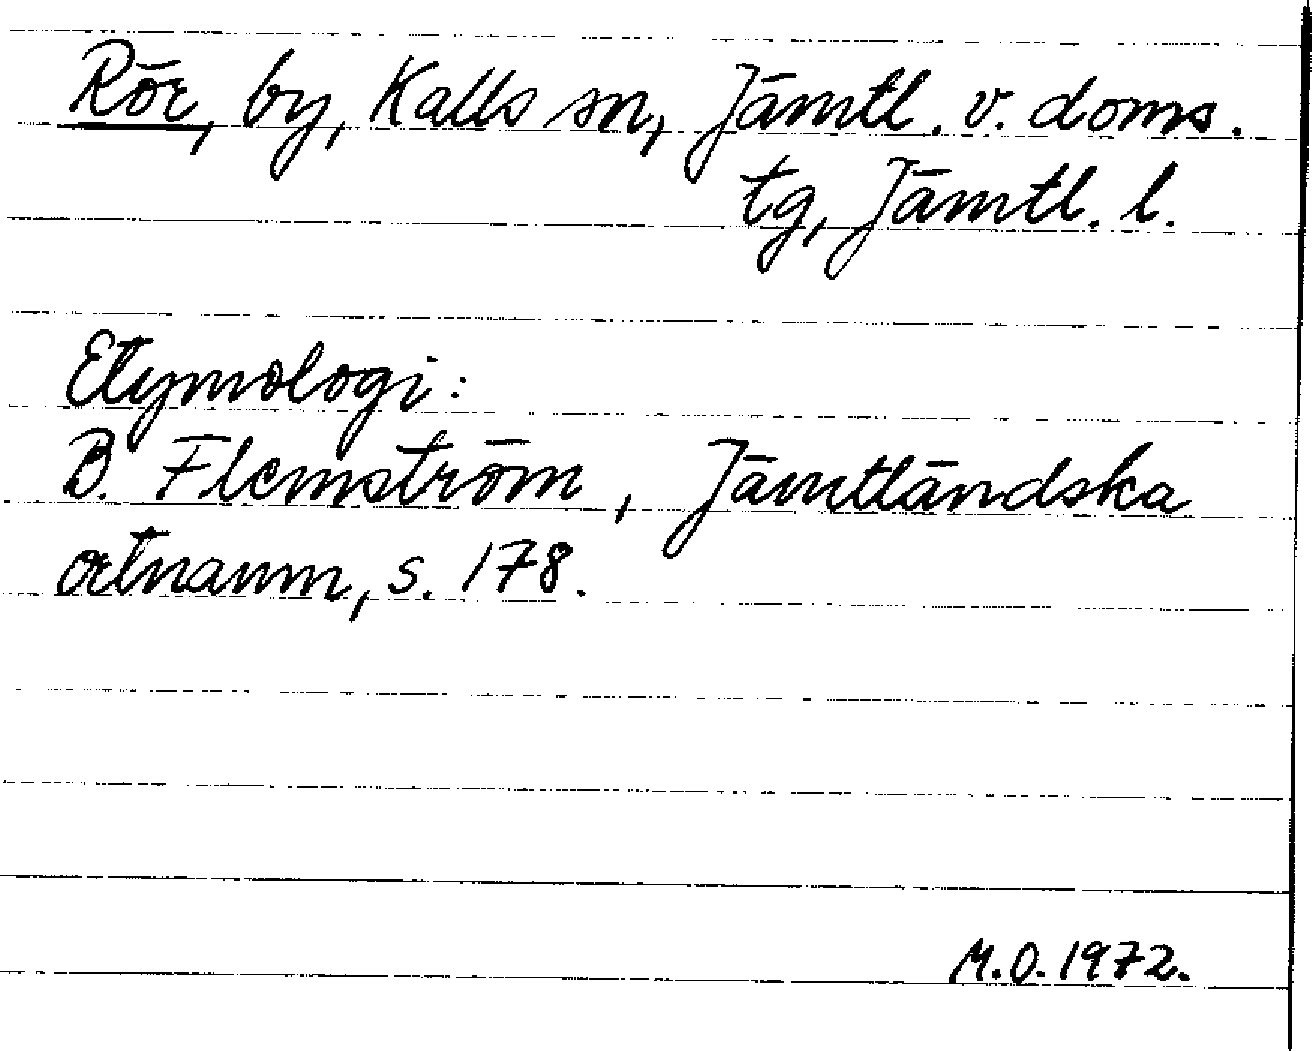 Rör, by, Kalls sn, Jämtl. v. doms.
tg, Jämtl. l.
Etymologi:
B. Flemström, Jämtländska
ortnamn, s. 178.
M.O. 1972.